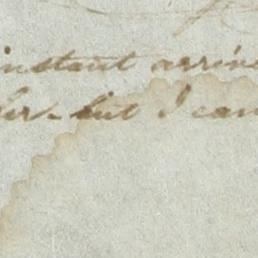 instant arrive
but I can